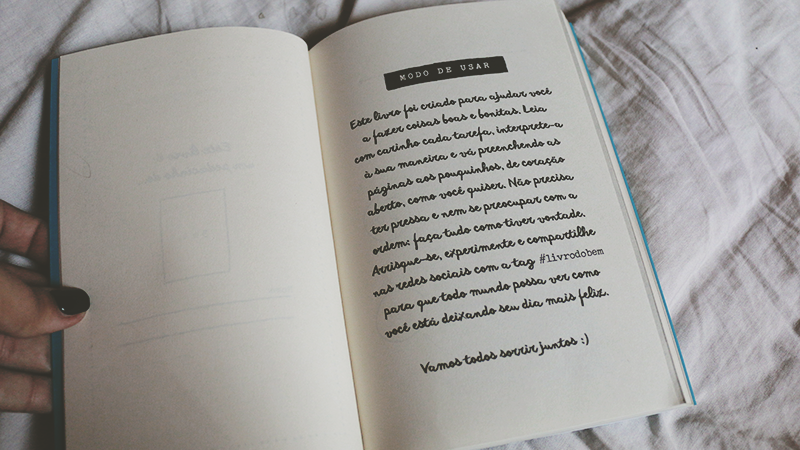 MODO DE USAR
Este livro foi criado para ajudar você
a fazer coisas boas e bonitas. Leia
com carinho cada tarefa, interprete-a
à sua maneira e vá preenchendo as
páginas aos pouquinhos, de coração
aberto, como você quiser. Não precisa
ter pressa e nem se preocupar com a
ordem: faça tudo como tiver vontade.
Arrisque-se, experimente e compartilhe
nas redes sociais com a tag #livrodobem
para que todo mundo possa ver como
você está deixando seu dia mais feliz.
Vamos todos sorrir juntos :)